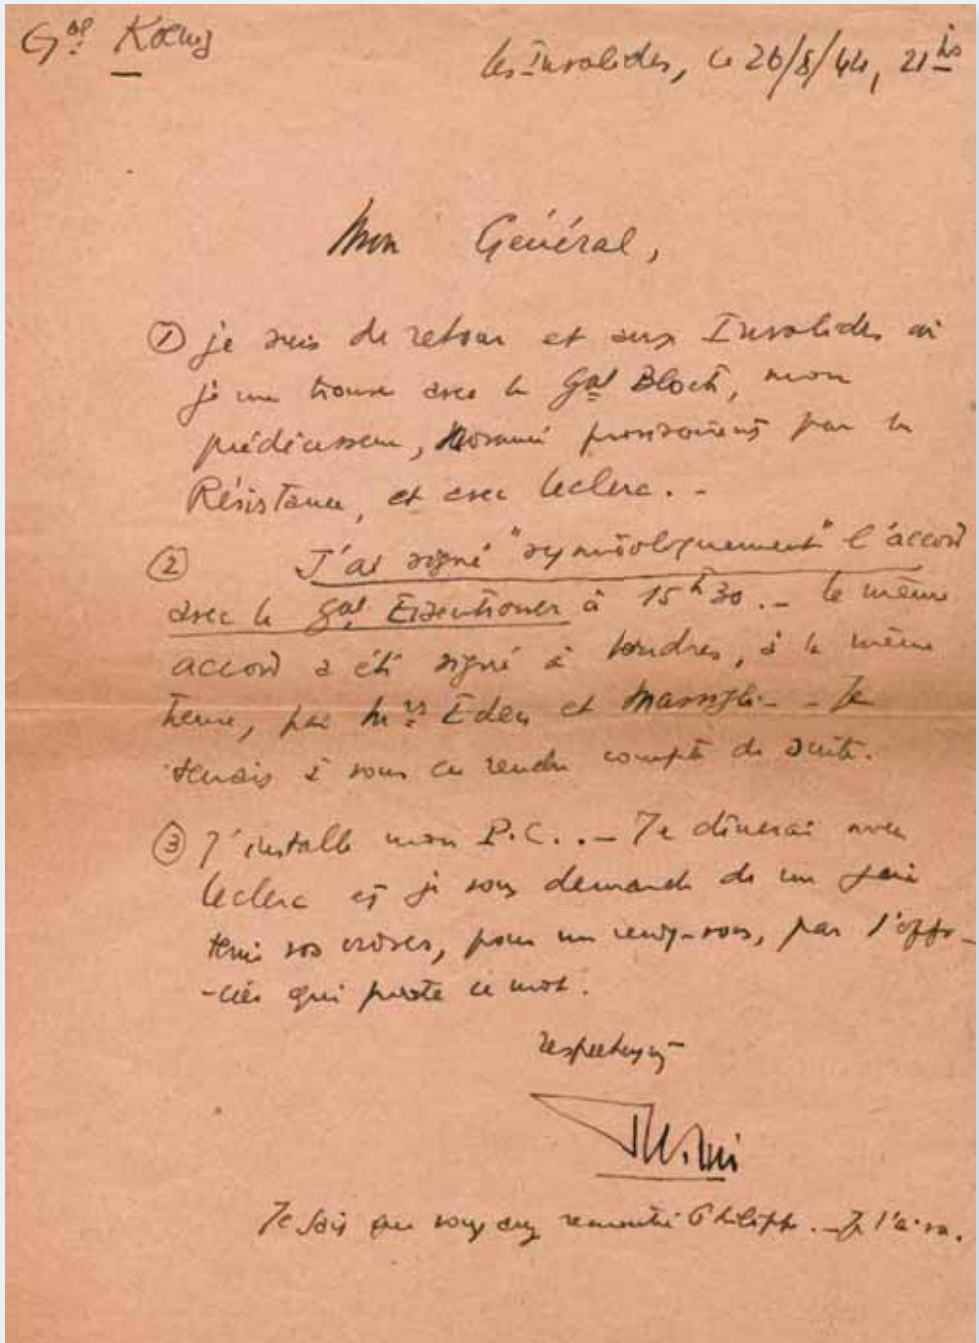 Gal Koenig
les Invalides, le 26/8/44, 21 hs
Mon Général,
① je suis de retour et aux Invalides où
je me trouve avec le Gal Bloch, mon
prédécesseur, nommé provisoirement par la
Résistance, et avec Leclerc. -
② J'ai signé "symboliquement" l'accord
avec le Gal Eisenhower à 15h30. - le même
accord a été signé à Londres, à la même
heure, par Mrs Eden et Massigli - - Je
tenais à vous en rendre compte de suite.
③ J'installe mon P.C.. - Je dînerai avec
Leclerc et je vous demande de me faire
tenir vos ordres, pour un rendez-vous, par l'offi-
-cier qui porte ce mot.
respectueusement
Je sais que vous avez rencontré Philippe. - Je l'ai vu.